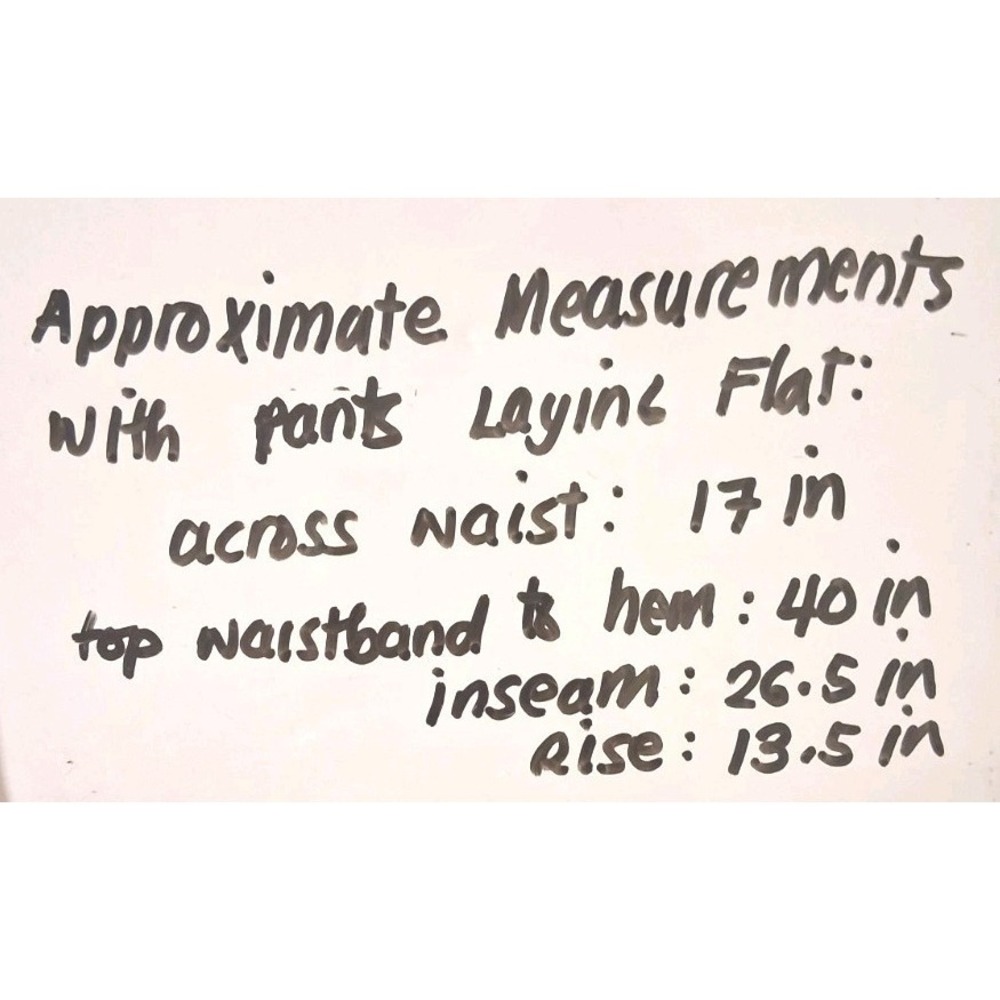 Approximate Measurements
with pants Laying Flat:
across waist: 17 in
top waistband to hem: 40 in
inseam: 26.5 in
Rise: 13.5 in